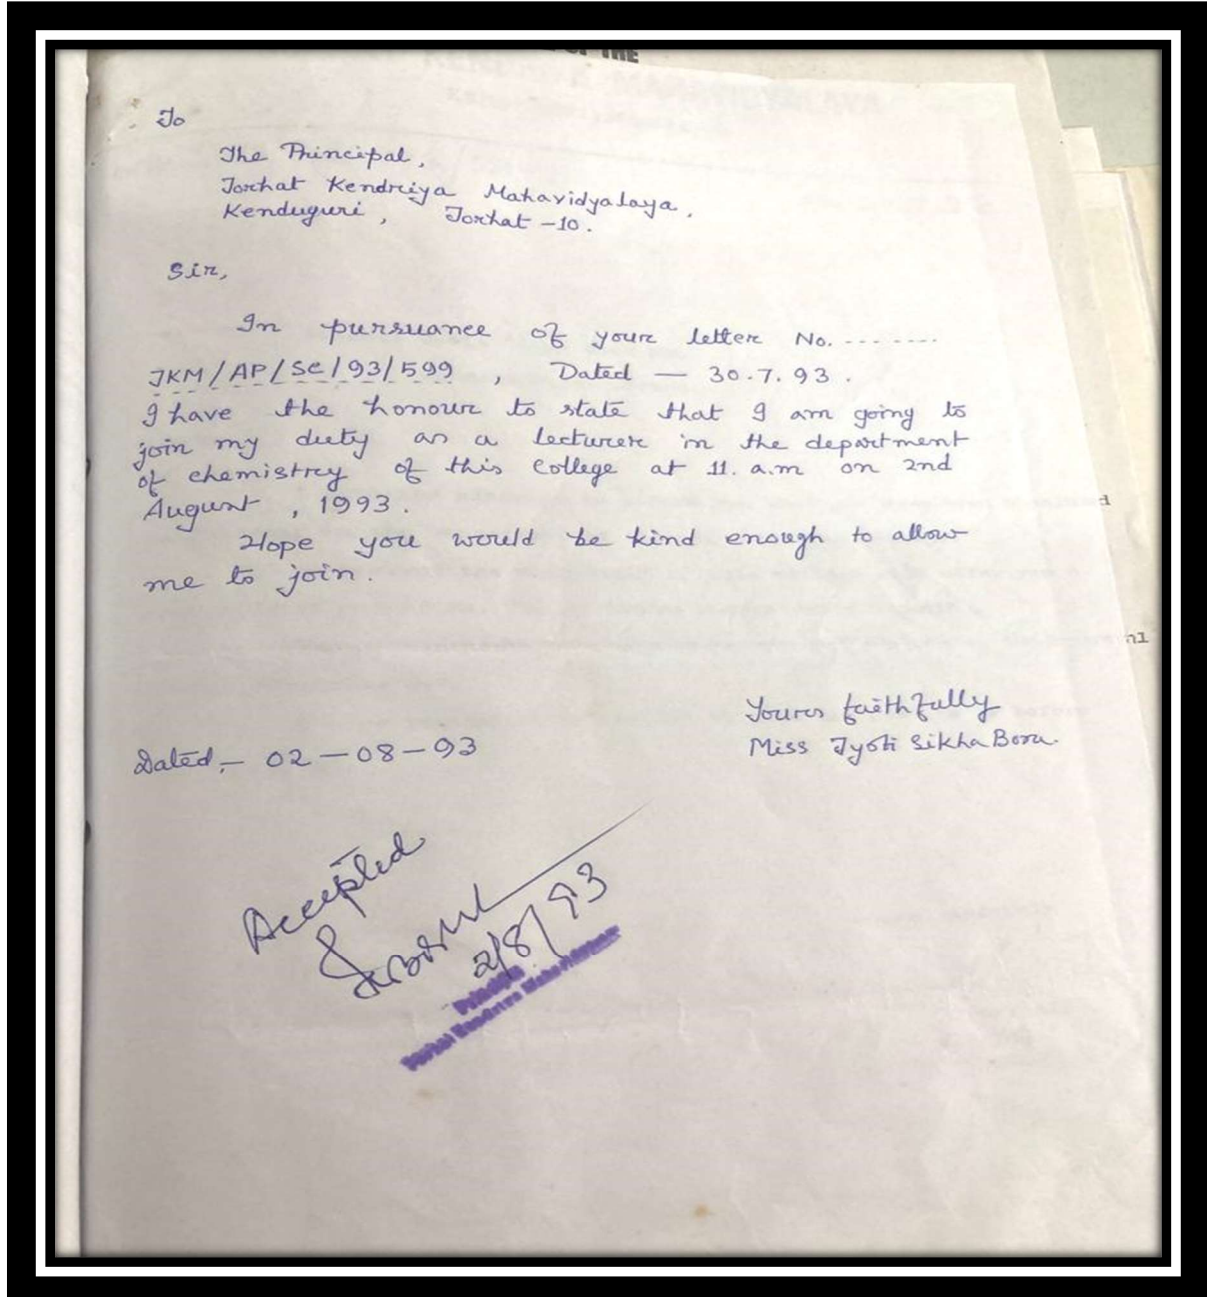 OF THE
To
The Principal,
Jorhat Kendriya Mahavidyalaya,
Kenduguri, Jorhat -10.
Sir,
In pursuance of your letter No. .......
JKM/AP/Sc/93/599, Dated — 30.7.93.
I have the honour to state that I am going to
join my duty as a lecturer in the department
of chemistry of this college at 11. a.m on 2nd
August, 1993.
Hope you would be kind enough to allow
me to join.
Yours faithfully
Miss Jyoti Sikha Bora.
Dated,— 02—08—93
Accepted
2/8/93
Principal
Jorhat Kendriya Mahavidyalaya